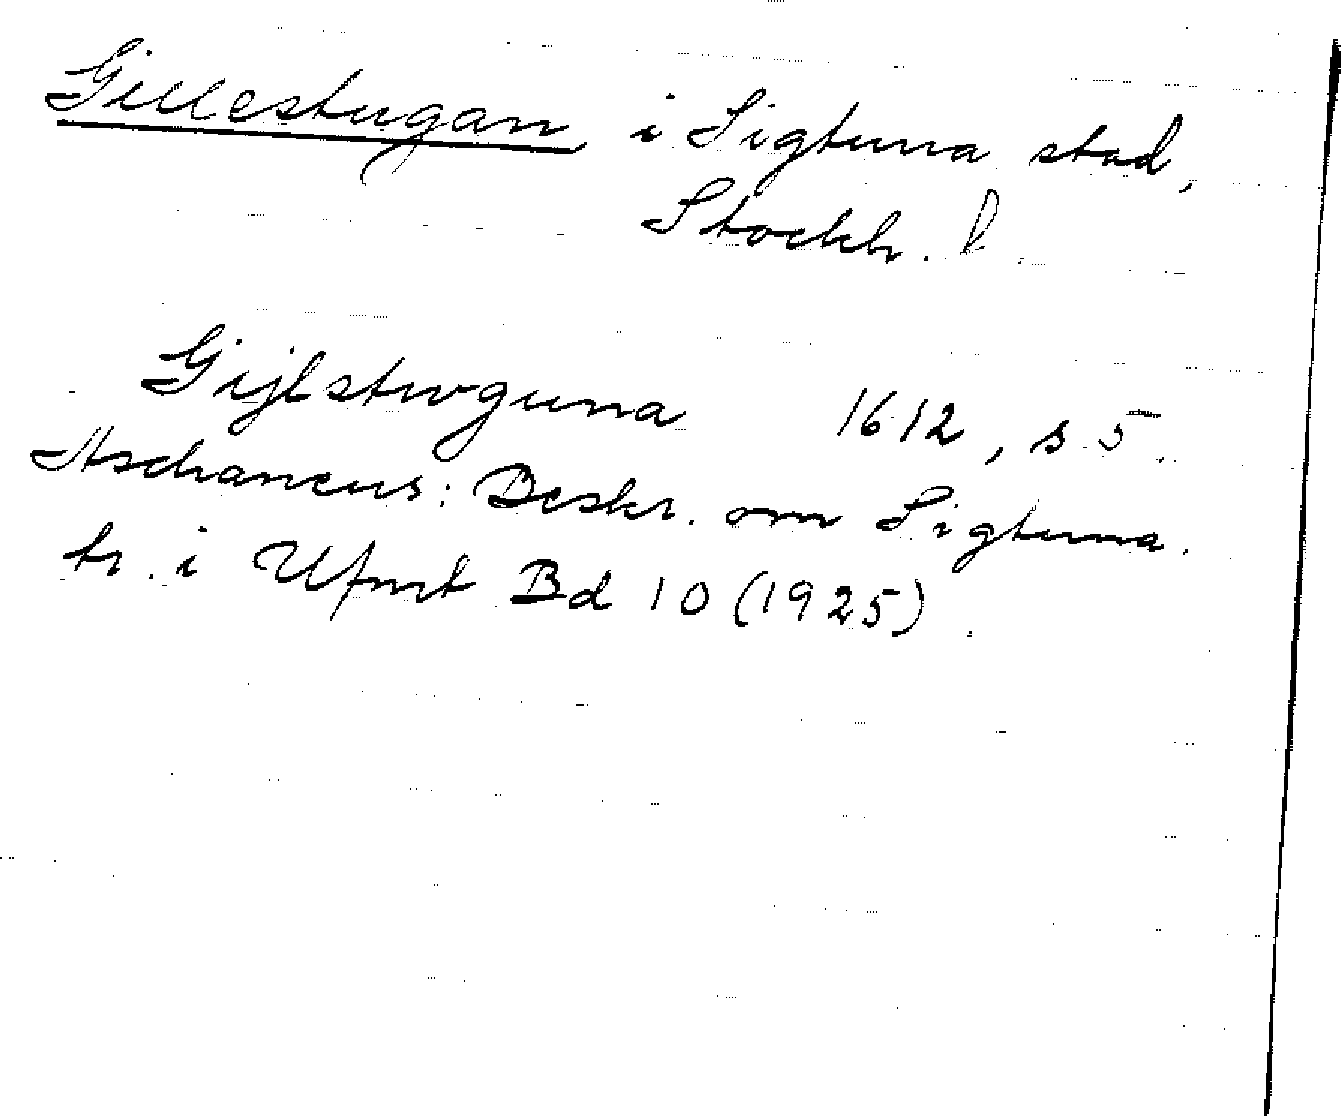 Gillestugan i Sigtuna stad,
Stockh. l.
Gijlstwguna 1612, s. 5.
Aschaneus: Beskr. om Sigtuna.
tr. i Ufmt Bd 10 (1925).